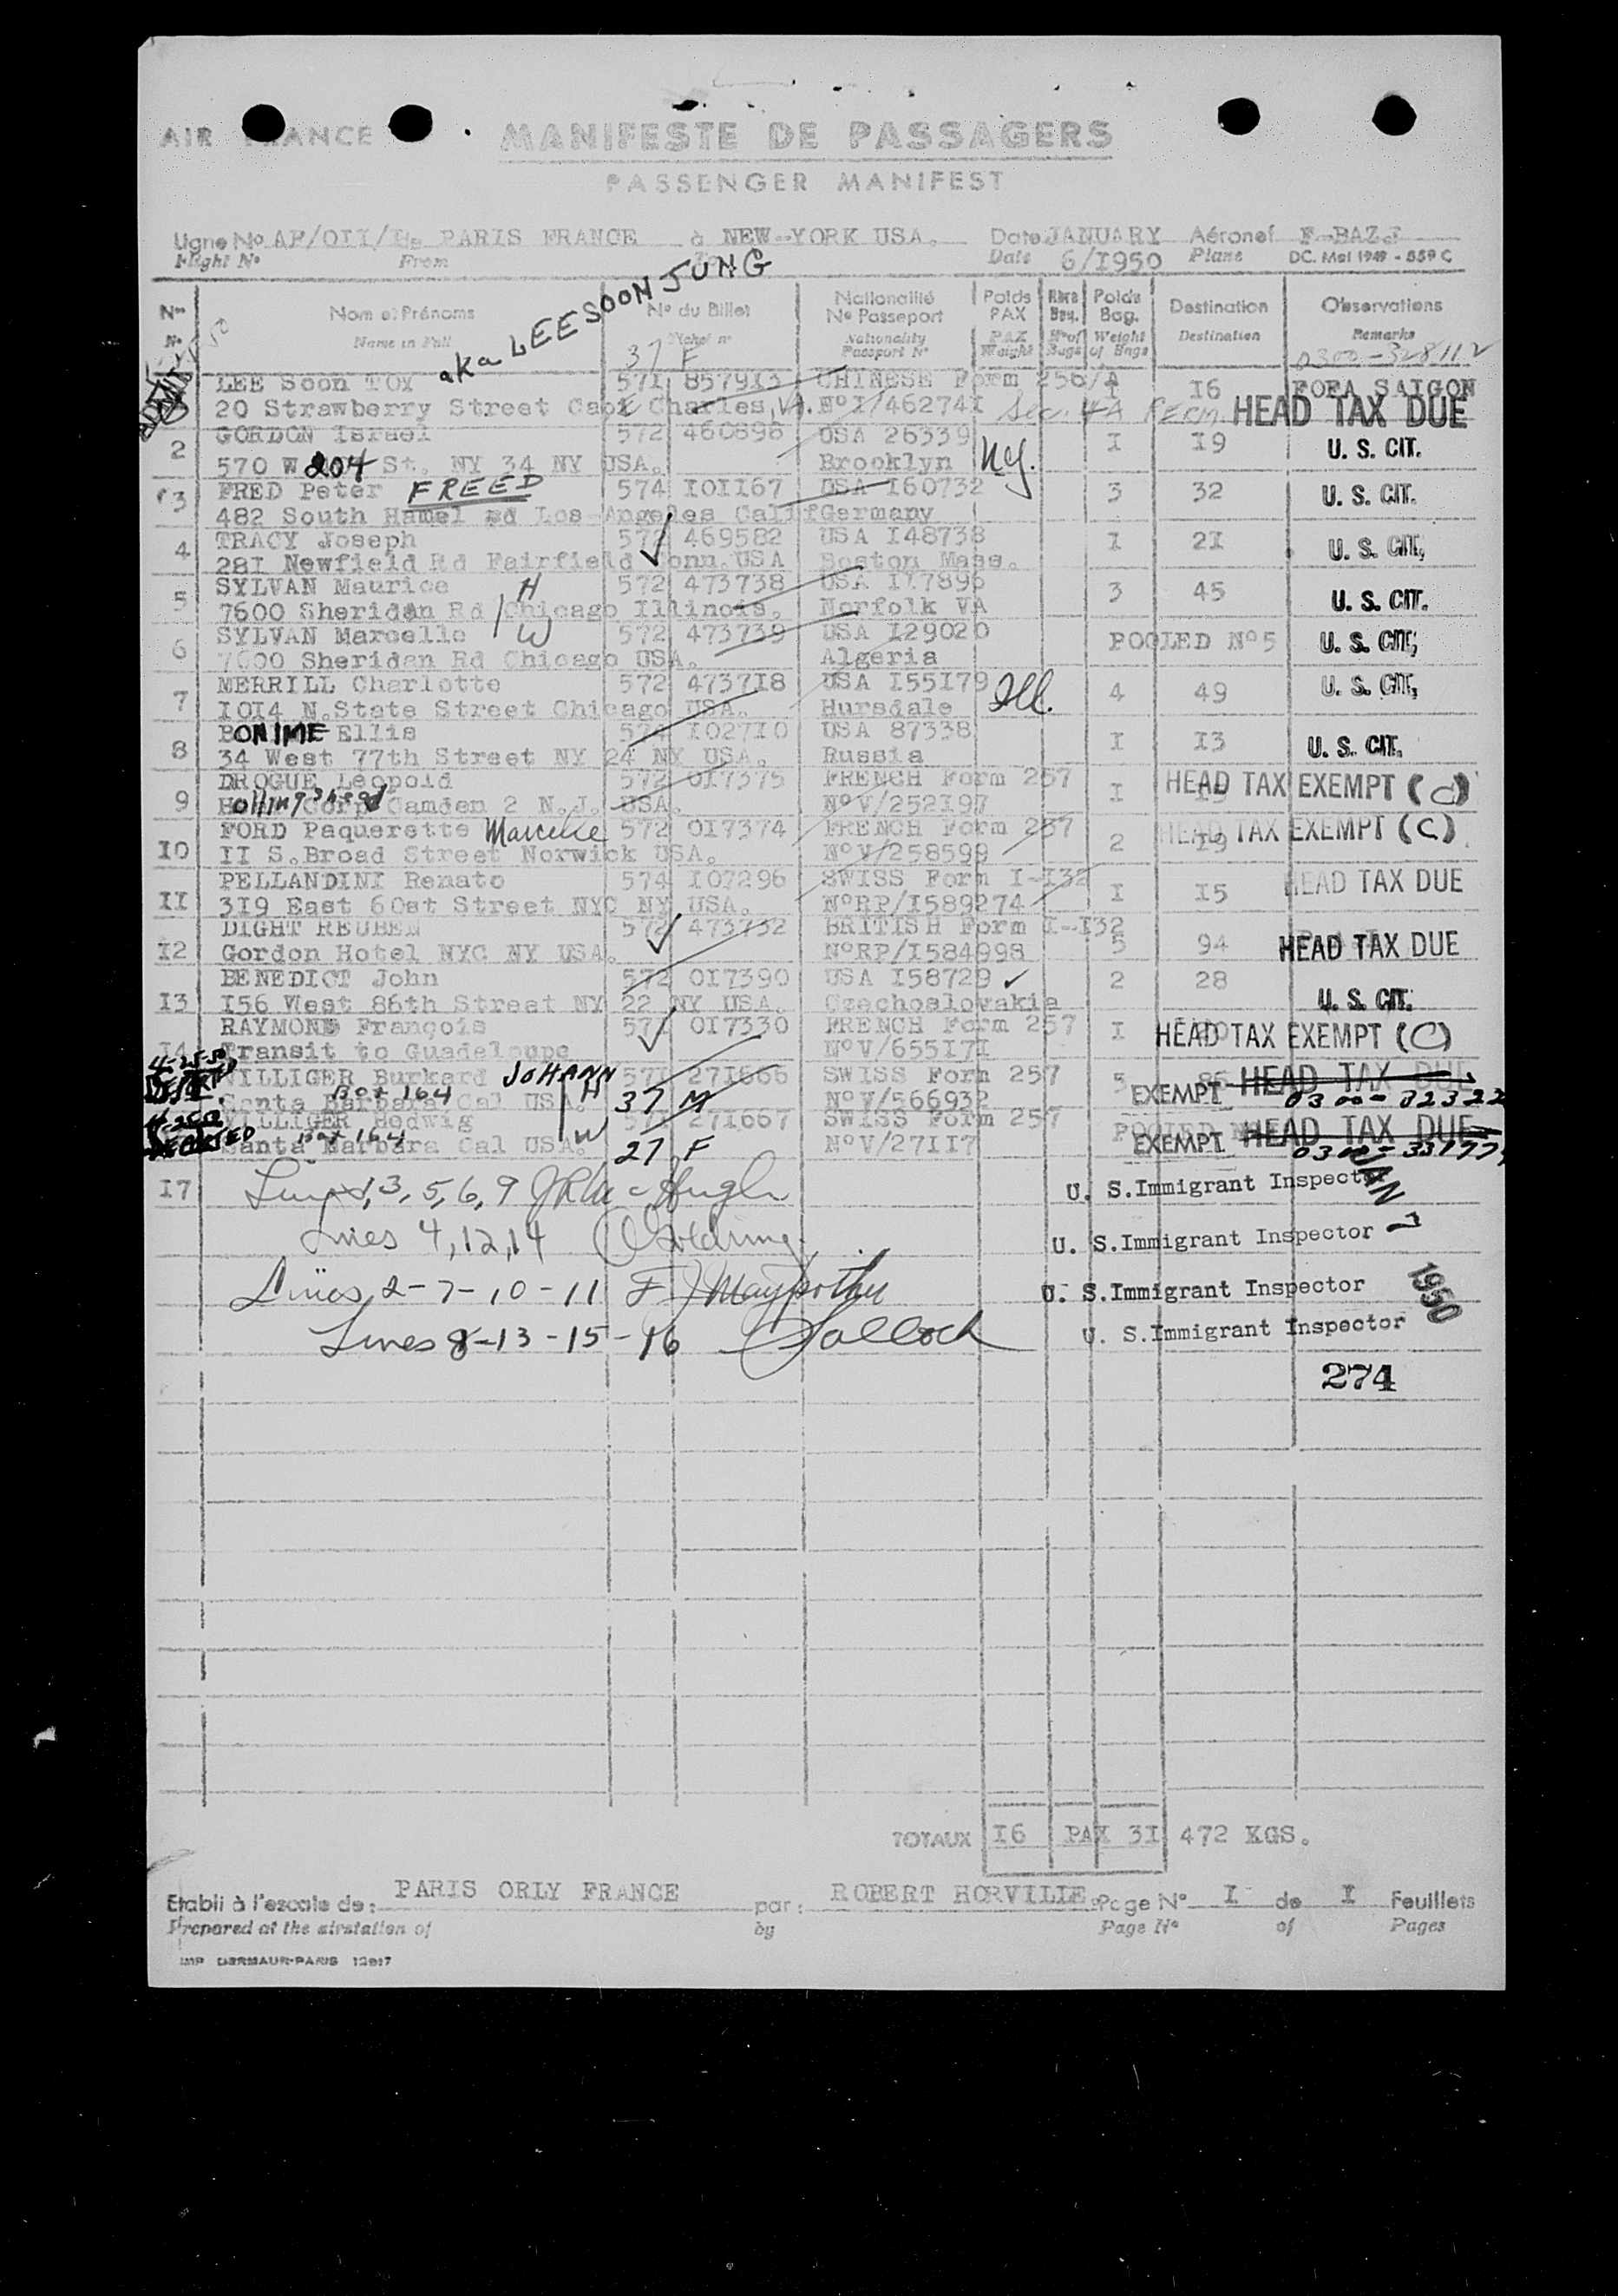 AIR FRANCE
MANIFESTE DE PASSAGERS
PASSENGER MANIFEST
Ligne No AF/OII/ De PARIS FRANCE à NEW-YORK USA. Date JANUARY Aéronef F-BAZJ
Flight No From Date 6/I950 Plane DC. Mai 1949 - 559 C
aka LEE SOON JUNG
Nos Nom et Prénoms No du Billet Nationalité No Passeport Poids PAX Poids Bag. Destination Observations
No Name in Full Ticket no Nationality Passport No PAX Weight No of Bags Weight of Bags Destination Remarks
37 F 0300-328112
LEE Soon TOY 57I 8579I3 CHINESE Form 256/A I I6 FOFA SAIGON
20 Strawberry Street Cape Charles, Va. NoI/46274I Sec. 4A Perm. HEAD TAX DUE
2 GORDON Israel 572 460896 USA 26339 I I9 U. S. CIT.
570 W 204 St. NY 34 NY USA. Brooklyn N.Y.
3 FRED Peter FREED 574 IOII67 USA I60732 3 32 U. S. CIT.
482 South Hamel Rd Los-Angeles Calif Germany
4 TRACY Joseph 572 469582 USA I48738 I 2I U. S. CIT,
28I Newfield Rd Fairfield Conn. USA Boston Mass.
5 SYLVAN Maurice H 572 473738 USA II7896 3 45 U. S. CIT.
7600 Sheridan Rd Chicago Illinois. Norfolk VA
6 SYLVAN Marcelle W 572 473739 USA I29020 POOLED No5 U. S. CIT,
7600 Sheridan Rd Chicago USA. Algeria
7 MERRILL Charlotte 572 4737I8 USA I55I79 4 49 U. S. CIT,
IOI4 N.State Street Chicago USA. Hursdale Ill.
8 BONIME Ellis 574 I027IO USA 87338 I I3 U. S. CIT.
34 West 77th Street NY 24 NY USA. Russia
9 DROGUE Leopold 572 OI7375 FRENCH Form 257 I HEAD TAX EXEMPT (C)
Hollingshead Corp Camden 2 N.J. USA. NoV/252I97
IO FORD Paquerette Marcelle 572 OI7374 FRENCH Form 257 2 I9 HEAD TAX EXEMPT (C)
II S.Broad Street Norwick USA. NoV/258599
II PELLANDINI Renato 574 I07296 SWISS Form I-I32 I I5 HEAD TAX DUE
3I9 East 60st Street NYC NY USA. NoRP/I589274
I2 DIGHT REUBEN 572 473732 BRITISH Form I-I32 5 94 HEAD TAX DUE
Gordon Hotel NYC NY USA. NoRP/I584998
I3 BENEDICT John 572 OI7390 USA I58729 2 28 U. S. CIT.
I56 West 86th Street NY 22 NY USA. Czechoslovakia
I4 RAYMOND François 57 OI7330 FRENCH Form 257 I HEAD TAX EXEMPT (C)
Transit to Guadeloupe NoV/655I7I
4-25-50 VILLIGER Burkard JOHANN H 57I 27I666 SWISS Form 257 5 86 EXEMPT HEAD TAX DUE
Box 164 Santa Barbara Cal USA. 37 M NoV/566932
VILLIGER Hedwig W 57I 27I667 SWISS Form 257 POOLED EXEMPT HEAD TAX DUE
DEPARTED Box 164 Santa Barbara Cal USA. 27 F NoV/27II7
I7 Lines 1, 3, 5, 6, 9 U. S.Immigrant Inspector
Lines 4, 12, 14 U. S.Immigrant Inspector
Lines 2-7-10-11 U. S.Immigrant Inspector
Lines 8-13-15-16 U. S.Immigrant Inspector
JAN 7 1950
274
TOTAUX I6 PAX 3I 472 KGS.
Etabli à l'escale de: PARIS ORLY FRANCE par: ROBERT HORVILLE. Page No I de I Feuillets
Prepared at the airstation of by Page No of Pages
IMP DERMAUR-PARIS